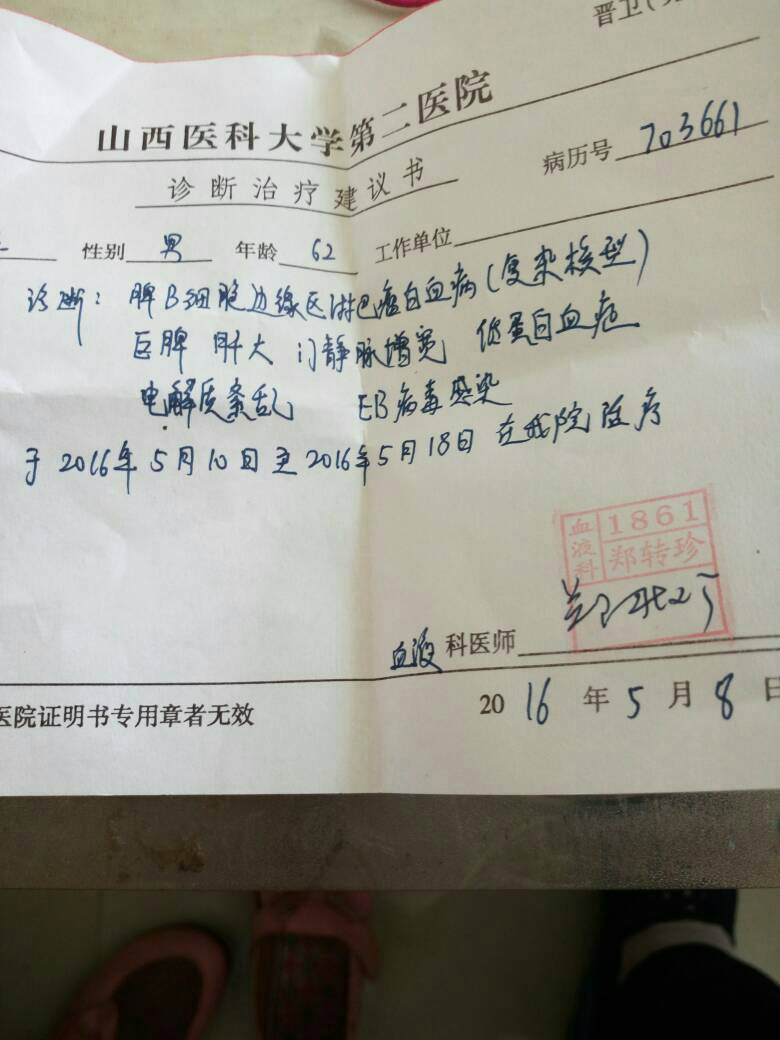 晋卫(
山西医科大学第二医院
诊断治疗建议书
病历号 703661
性别 男 年龄 62 工作单位
诊断: 脾B细胞边缘区淋巴瘤白血病(复杂核型)
巨脾 肝大 门静脉增宽 低蛋白血症
电解质紊乱 EB病毒感染
于2016年5月10日至2016年5月18日在我院医疗
血液科
1861
郑转珍
血液 科医师
2016年5月8日
医院证明书专用章者无效